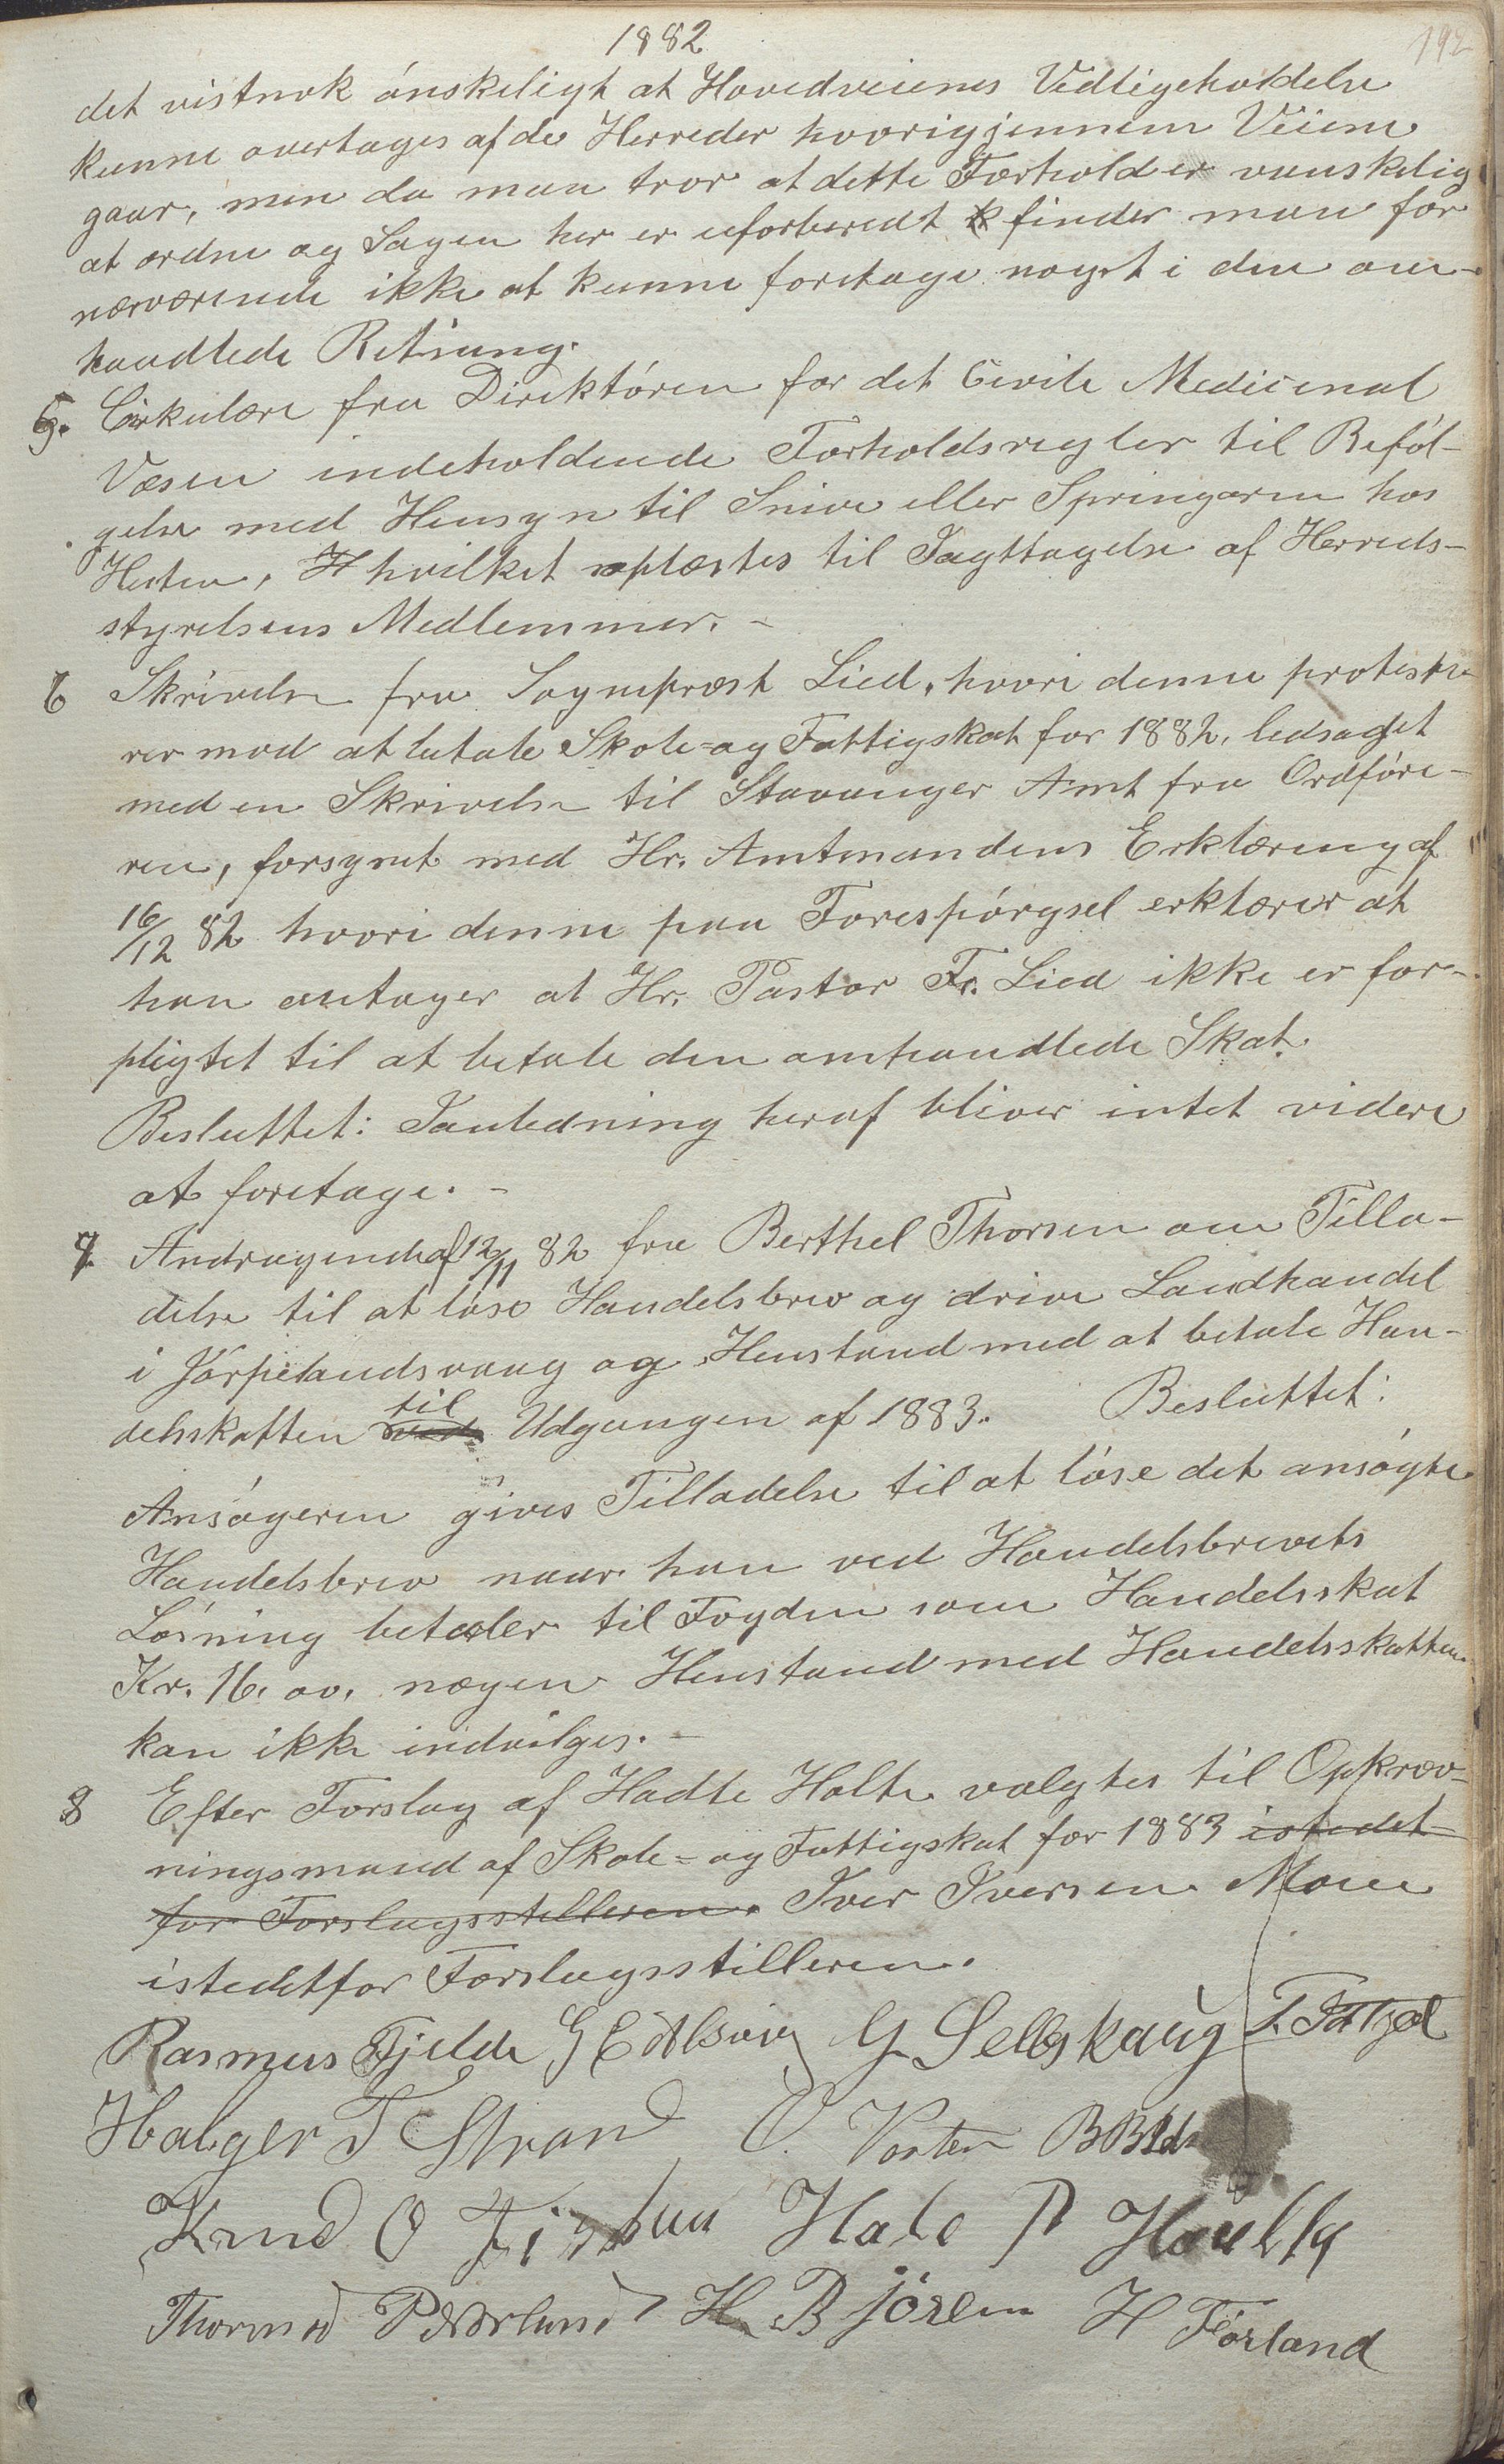 1882
192
det vistnok ønskeligt at Hovedveienes Vedligeholdelse
kunne overtages af de Herreder hvorigjennem Veiene
gaar, men da man tror at dette Forhold er vanskelig
at ordne og Sagen her er uforberedt finder man for
nærværende ikke at kunne foretage noget i den om-
handlede Retning.
5. Cirkulære fra Direktøren for det Civile Medicinal
Væsen indeholdende Forholdsregler til Beføl-
gelse med Hensyn til Snive eller Springorm hos
Hesten, hvilket oplæstes til Iagttagelse af Herreds-
styrelsens Medlemmer. -
6 Skrivelse fra Sognepræst Lied, hvori denne proteste-
rer mod at betale Skole- og Fattigskat for 1882, ledsaget
med en Skrivelse til Stavanger Amt fra Ordføre-
ren, forsynet med Hr. Amtmandens Erklæring af
16/12 82 hvori denne paa Forespørgsel erklærer at
han antager at Hr. Pastor Fr. Lied ikke er for-
pligtet til at betale den omhandlede Skat.
Besluttet: Ianledning heraf bliver intet videre
at foretage. -
7. Andragende af 12/11 82 fra Berthel Thorsen om Tilla-
delse til at løse Handelsbrev og drive Landhandel
i Jørpelandsvaag og Henstand med at betale Han-
delsskatten ved til Udgangen af 1883. Besluttet:
Ansøgeren gives Tilladelse til at løse det ansøgte
Handelsbrev naar han ved Handelsbrevets
Løsning betaler til Fogden som Handelsskat
Kr. 16. oo. nogen Henstand med Handelsskatten
kan ikke indvilges. -
8 Efter Forslag af Hadle Holte valgtes til Opkræv-
ningsmand af Skole- og Fattigskat for 1883 istedet-
for Forslagsstilleren. Iver Iversen Moen
istedetfor Forslagsstilleren.
Rasmus Fjelde G Selleskaug
Holger T Strand O. Voster
Knud O Hale P
Thormod H. Bjøren H Førland